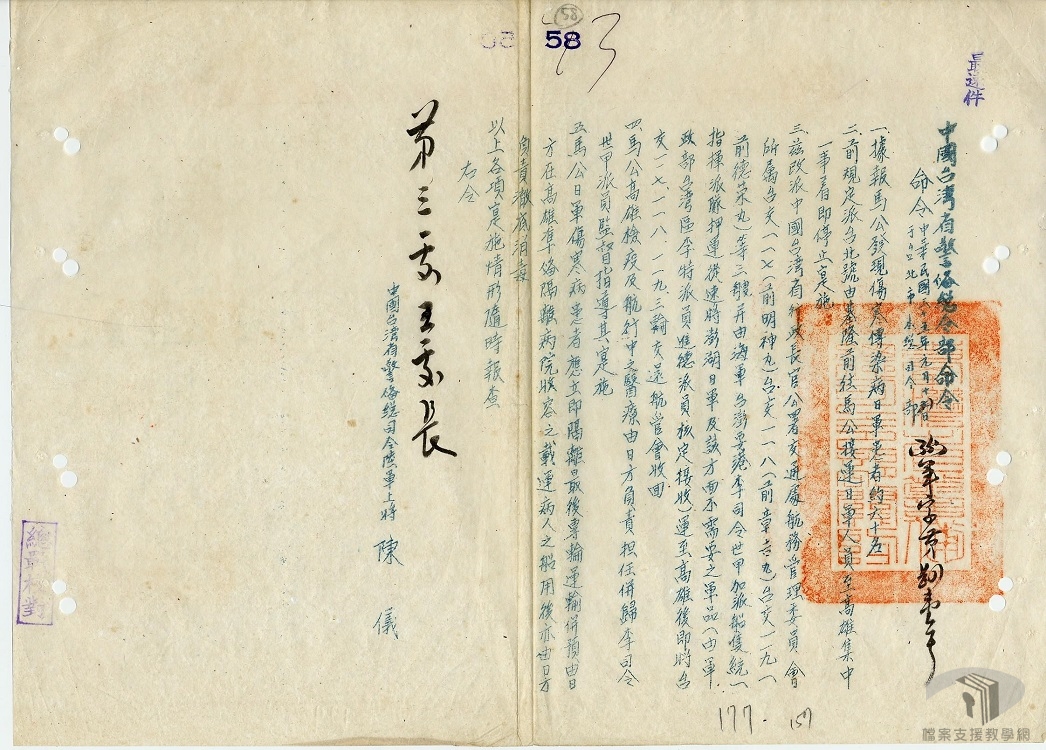 58
58
最速件
中國台灣省警備總司令部命令
命令 中華民國三十五年元月十
于台北市本總司令部
一、據報馬公發現傷寒傳染病日軍患者約六十名
二、前規定派台北號由基隆前往馬公接運日軍人員至高雄集中
一事着即停止實施
三、茲改派中國台灣省行政長官公署交通處航務管理委員會
所屬台交一一七(前明神丸)台交一一八(前章吉丸)台交一一九(
前德榮丸)等三艘并由海軍台澎要港李司令世甲加派船隻統一
指揮派艦押運從速將澎湖日軍及該方面不需要之軍品(由軍
政部台灣區李特派員進德派員核定接收)運至高雄後即將台
交一一七、一一八、一一九三輪交還航管會收回
四、馬公高雄檢疫及航行中之醫療由日方負責担任併歸李司令
世甲派員監督指導其實施
五、馬公日軍傷寒病患者應立即隔離最後專輪運輸併預由日
方在高雄準俻隔離病院收容之載運病人之船用後亦由日方
負責澈底消毒
以上各項實施情形隨時報查
右令
第三處王處長
中國台灣省警俻總司令陸軍上將 陳 儀
177.
157
檔案支援教學網